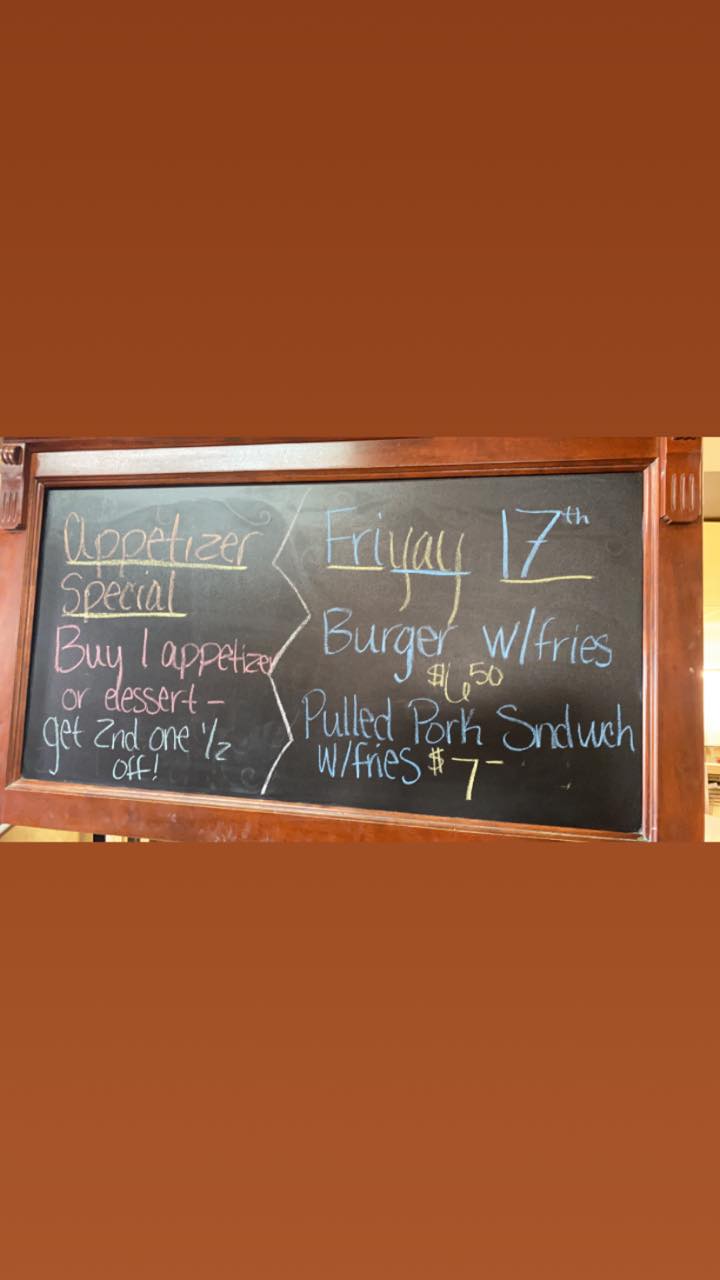 Appetizer
Special
Buy 1 appetizer
or dessert -
get 2nd one 1/2
off!
Friyay 17th
Burger w/fries
$6 50
Pulled Pork Sndwch
w/fries $7-